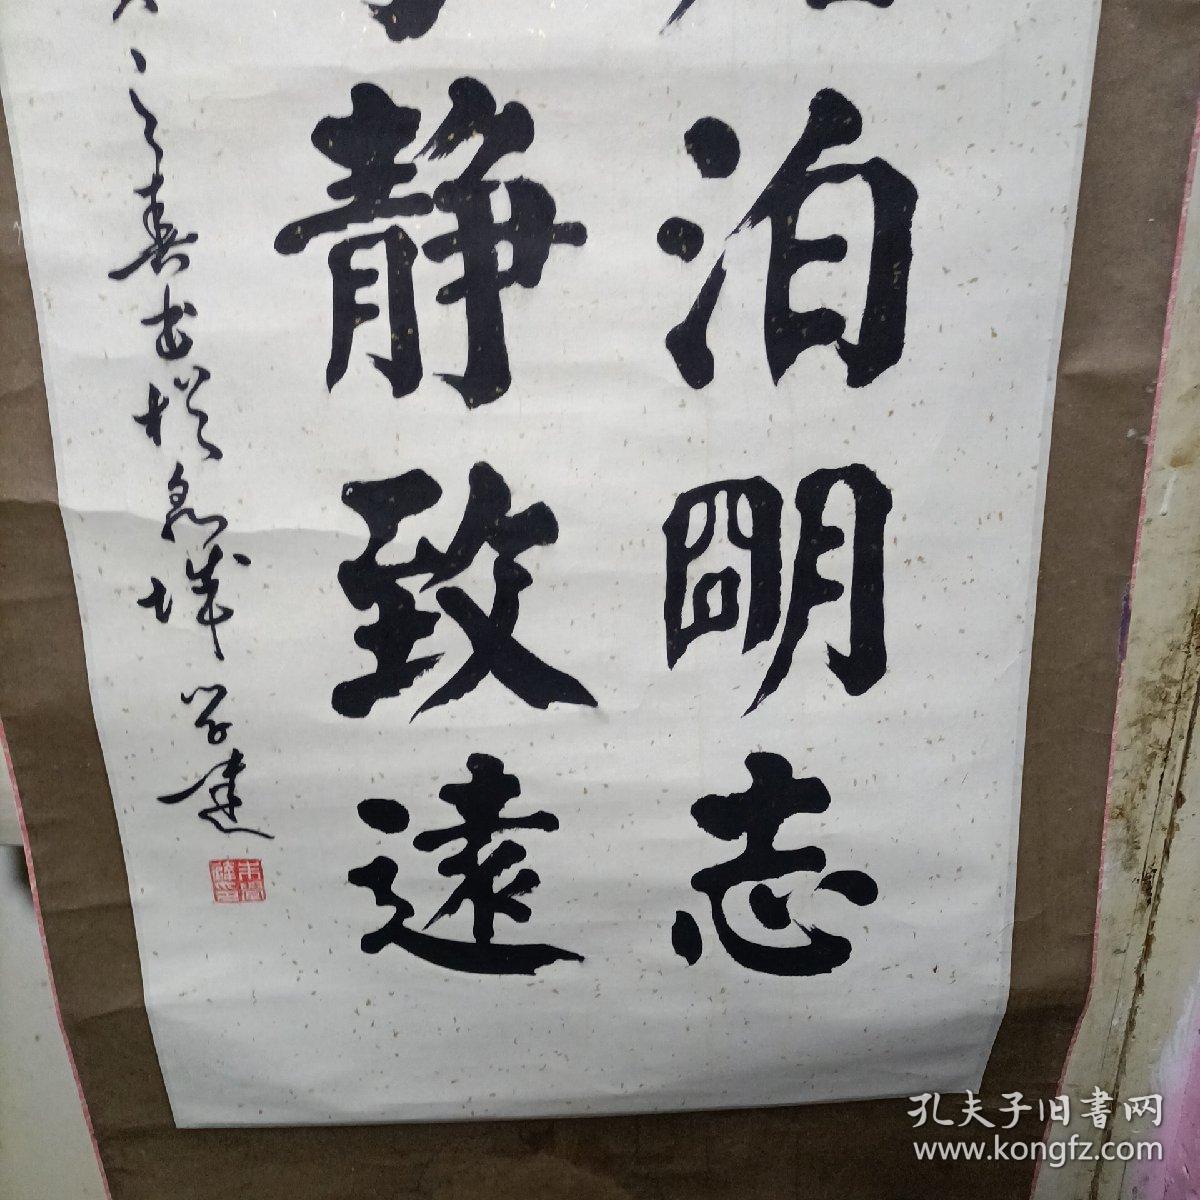 泊明志
静致遠
之春书於泉城 学建
孔夫子旧书网
www.kongfz.com